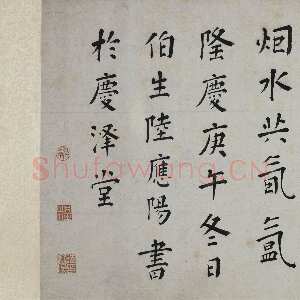 烟水共氤氳
隆慶庚午冬日
伯生陸應陽書
於慶澤堂
Shufawang.CN